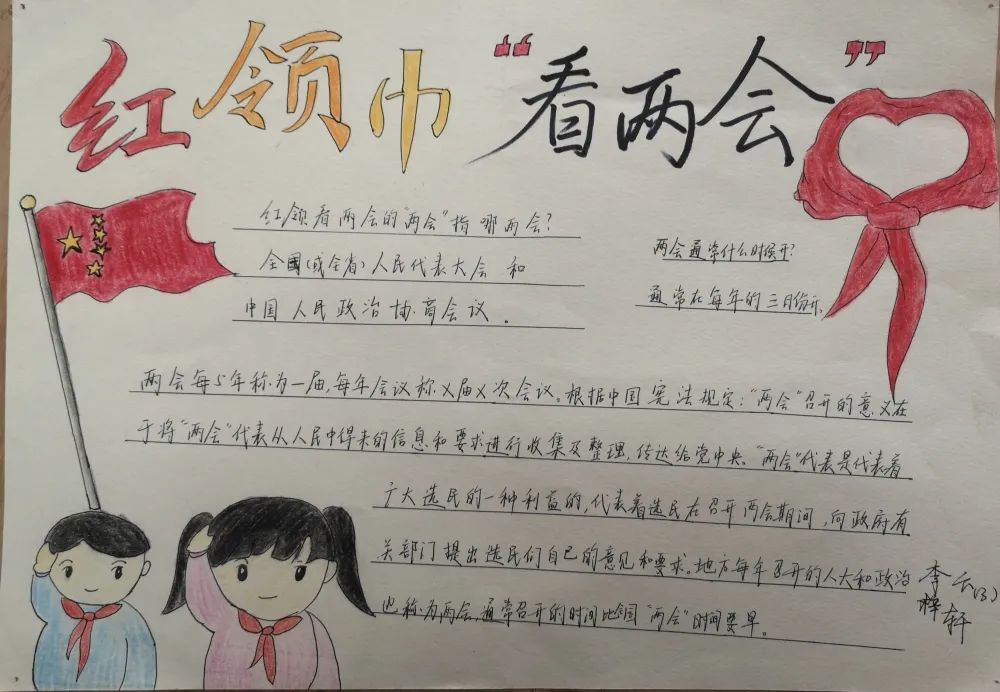 红领巾“看两会”
红领看两会的“两会”指哪两会?
全国(或全省)人民代表大会 和
中国人民政治协商会议。
两会通常什么时侯开?
通常在每年的三月份开。
两会每5年称为一届,每年会议称X届X次会议。根据中国宪法规定:“两会”召开的意义在
于将“两会”代表从人民中得来的信息和要求进行收集及整理,传达给党中央。“两会”代表是代表着
广大选民的一种利益的,代表着选民在召开两会期间,向政府有
关部门提出选民们自己的意见和要求。地方每年召开的人大和政治
也称为两会,通常召开的时间比全国“两会”时间要早。
李梓轩
(3)